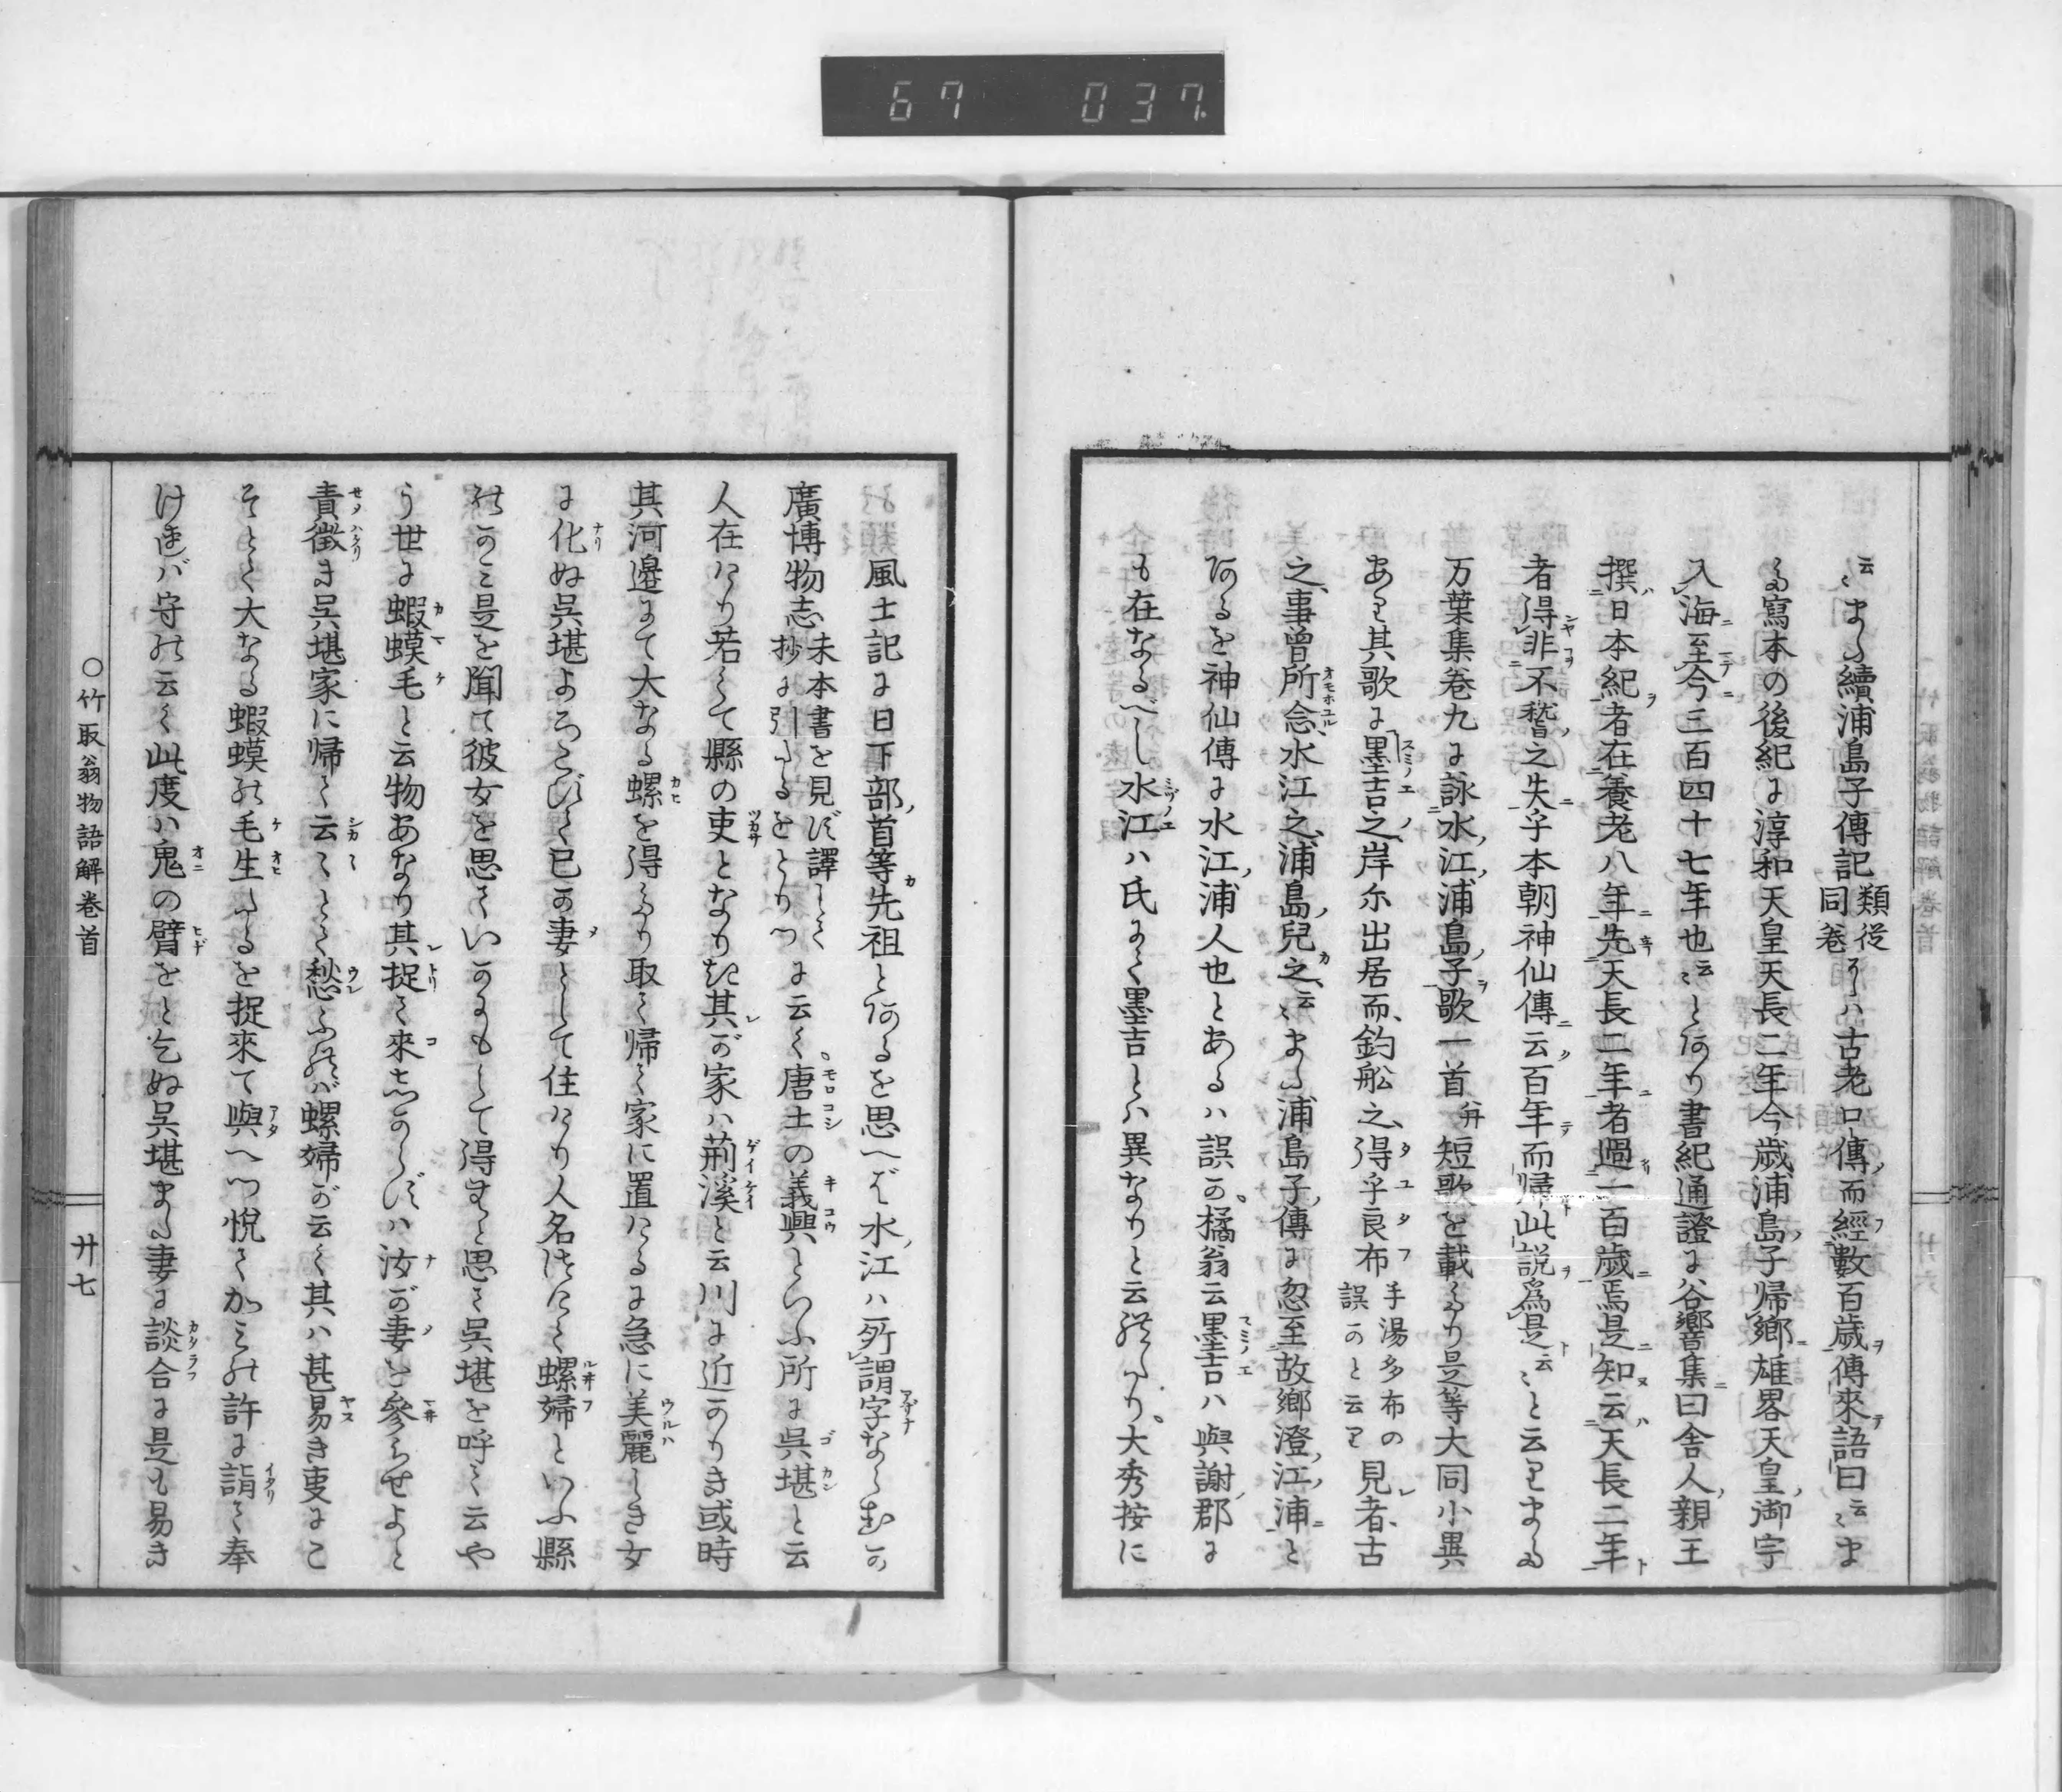 67 037.
云〻また續浦島子傳記類従同巻には古老口傳而經數百歳傳來語曰云〻ま
た寫本の後紀に淳和天皇天長二年今歳浦島子帰郷雄畧天皇御宇
入海至今三百四十七年也云〻とあり書紀通證に谷響集曰舎人親王
撰日本紀者在養老八年先天長二年者過一百歳焉是知云天長二年
者得非不稽之失乎本朝神仙傳云百年而帰此説爲是云〻と云りまた
万葉集巻九に詠水江浦島子歌一首并短歌を載たり是等大同小異
あり其歌に墨吉之岸尓出居而釣舩之得乎良布手湯多布の誤かと云り見者古
之事曽所念水江之浦島兒之云〻また浦島子傳に忽至故郷澄江浦と
あるを神仙傳に水江浦人也とあるハ誤か橘翁云墨吉ハ與謝郡に
も在なるべし水江ハ氏にて墨吉とハ異なりと云れたり大秀按に
風土記に日下部首等先祖とあるを思へば水江ハ所謂字ならむか
廣博物志未本書を見ず譯して抄に引たるをとりつに云く唐土の義興といふ所に呉堪と云
人在けり若くて縣の吏となりき其が家ハ荊溪と云川に近かりき或時
其河邊にて大なる螺を得たり取て帰て家に置けるに急に美麗しき女
に化ぬ呉堪よろこびて己か妻として住けり人名けて螺婦といふ縣
のかミ是を聞て彼女を思ていかにもして得むと思て呉堪を呼て云や
う世に蝦蟆毛と云物あなり其捉て來志からずハ汝が妻を參らせよと
責徴き呉堪家に帰て云〻とて愁ふれば螺婦が云く其ハ甚易き叓にこ
そとて大なる蝦蟆の毛生たるを捉來て與へつ悦てかミの許に詣て奉
けれバ守の云く此度ハ鬼の臂をと乞ぬ呉堪また妻に談合に是も易き
○竹取翁物語解巻首
廿七